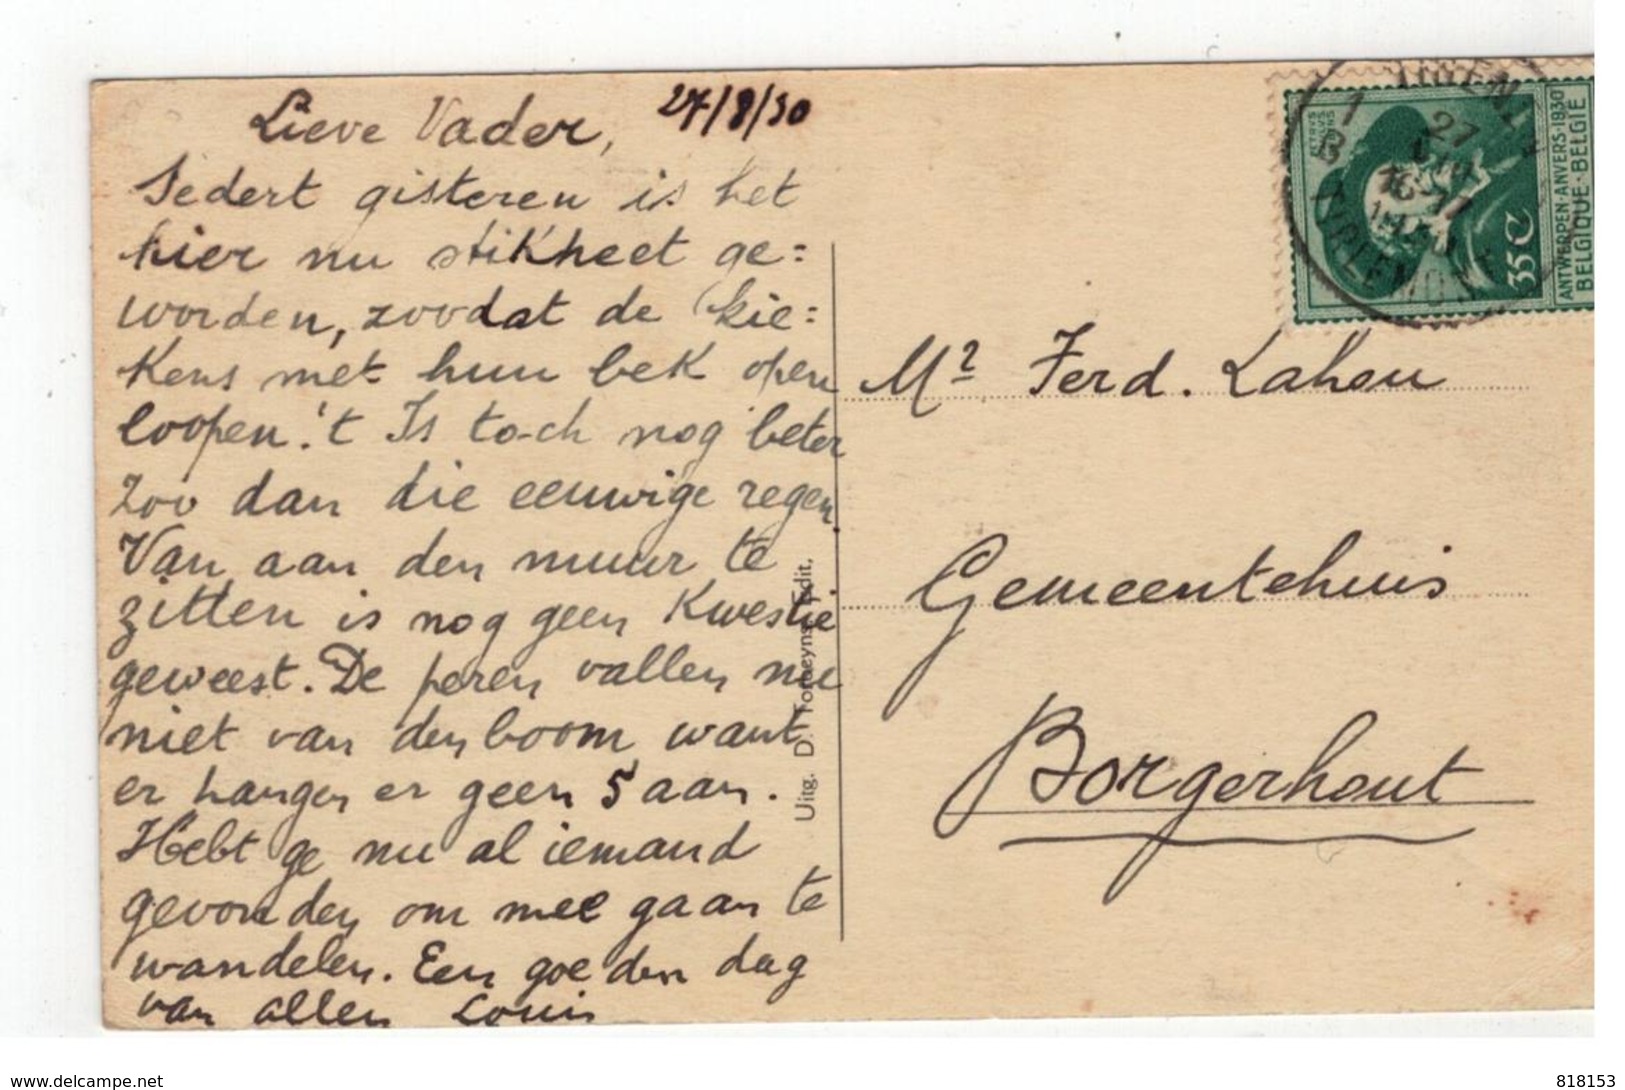 Lieve Vader, 27/8/30
Sedert gisteren is het
hier nu stikheet ge=
worden, zoodat de kie=
kens met hun bek open
loopen. 't Is toch nog beter
zoo dan die eeuwige regen.
Van aan den muur te
zitten is nog geen kwestie
geweest. De peren vallen nu
niet van den boom want
er hangen er geen 5 aan.
Hebt ge nu al iemand
gevonden om mee gaan te
wandelen. Een goeden dag
van allen Louis
Uitg. D. Edit.
Mr Ferd. Lahou
Gemeentehuis
Borgerhout
35 C
ANTWERPEN·ANVERS·1930
BELGIQUE·BELGIË
TIENEN
1 B
27
VIII
16-17
1930
TIRLEMONT
www.delcampe.net
818153